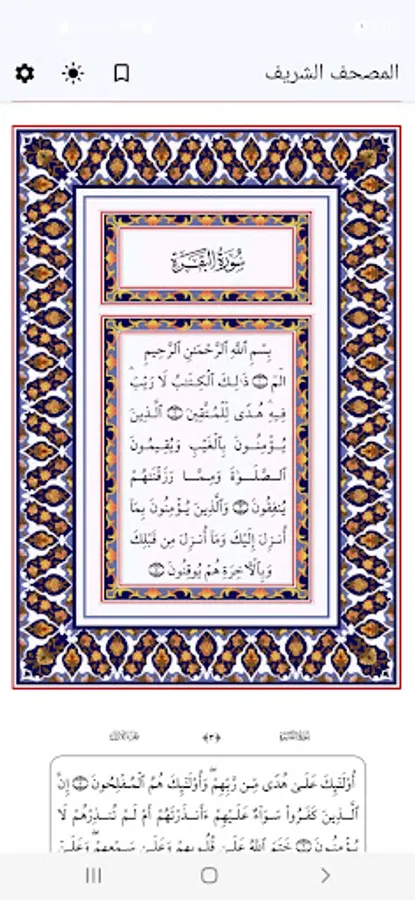 المصحف الشريف
سُورَةُ الْبَقَرَةِ
بِسْمِ ٱللَّهِ ٱلرَّحْمَٰنِ ٱلرَّحِيمِ
الٓمٓ ۝ ذَٰلِكَ ٱلْكِتَٰبُ لَا رَيْبَ ۛ
فِيهِ ۛ هُدًى لِّلْمُتَّقِينَ ۝ ٱلَّذِينَ
يُؤْمِنُونَ بِٱلْغَيْبِ وَيُقِيمُونَ
ٱلصَّلَوٰةَ وَمِمَّا رَزَقْنَٰهُمْ
يُنفِقُونَ ۝ وَٱلَّذِينَ يُؤْمِنُونَ بِمَا
أُنزِلَ إِلَيْكَ وَمَا أُنزِلَ مِن قَبْلِكَ
وَبِٱلْآخِرَةِ هُمْ يُوقِنُونَ ۝
سُورَةُ الْبَقَرَةِ ﴿٣﴾
أُوْلَٰٓئِكَ عَلَىٰ هُدًى مِّن رَّبِّهِمْ ۖ وَأُوْلَٰٓئِكَ هُمُ ٱلْمُفْلِحُونَ ۝ إِنَّ
ٱلَّذِينَ كَفَرُوا۟ سَوَآءٌ عَلَيْهِمْ ءَأَنذَرْتَهُمْ أَمْ لَمْ تُنذِرْهُمْ لَا
يُؤْمِنُونَ ۝ خَتَمَ ٱللَّهُ عَلَىٰ قُلُوبِهِمْ وَعَلَىٰ سَمْعِهِمْ ۖ وَعَلَىٰٓ